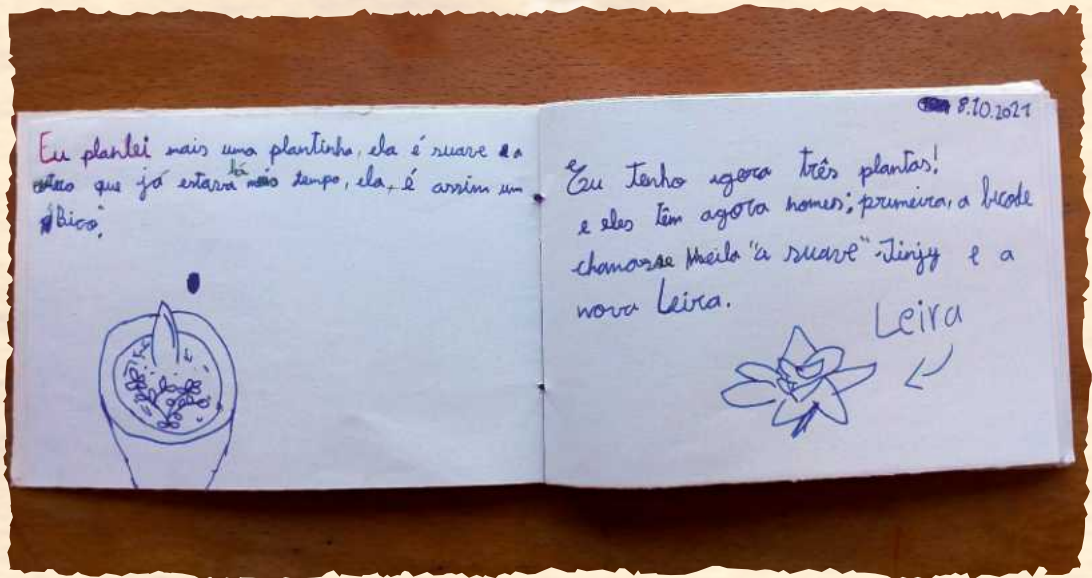 Eu plantei mais uma plantinha, ela é suave e a
outra que já estava lá mais tempo, ela, é assim um
"Bico".
8.10.2021
Eu Tenho agora três plantas!
e eles têm agora nomes; primeira, a bicode
chamasse Sheila "a suave" -Jinjy e a
nova Leira.
Leira